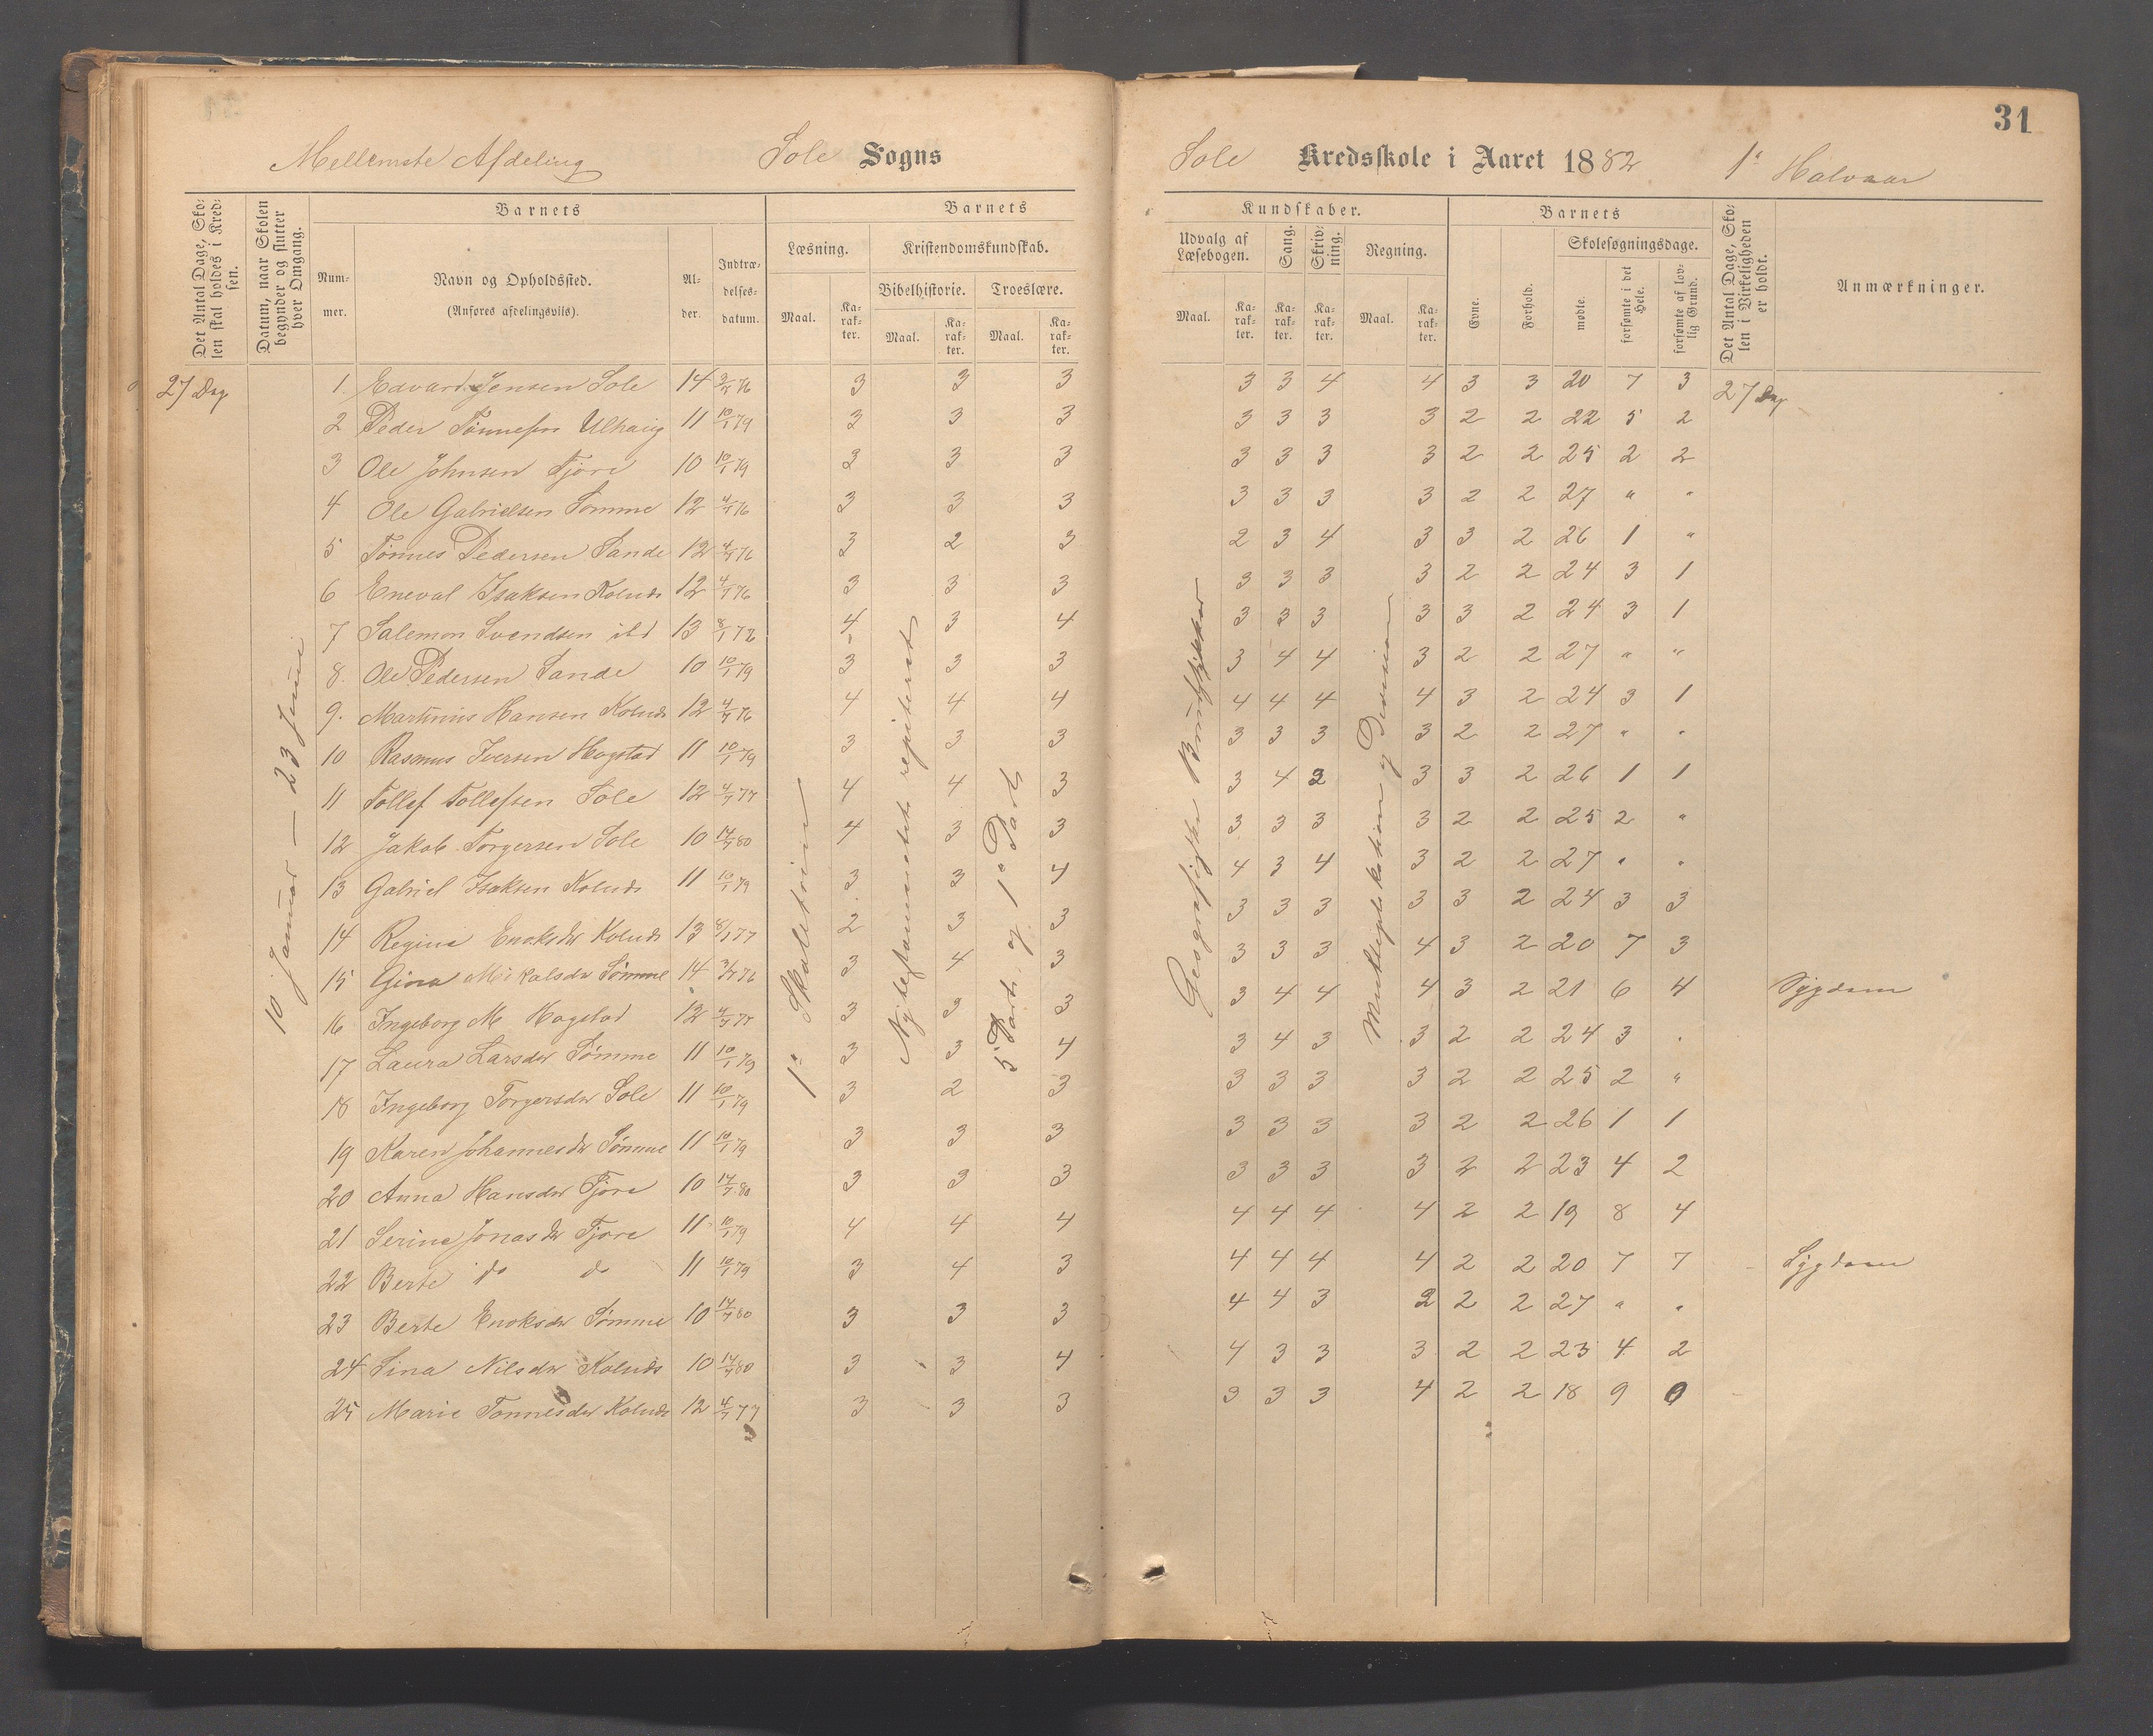 31
Mellemste Afdeling Sole Sogns
Sole Kredsskole i Aaret 1882 1ste Halvaar
Det Antal Dage, Sko-
len skal holdes i Kred-
sen.
Datum, naar Skolen
begynder og slutter
hver Omgang.
Barnets
Num-
mer.
Navn og Opholdssted.
(Anføres afdelingsviis).
Al-
der.
Indtræ-
delses-
datum.
Barnets
Læsning.
Maal.
Ka-
rak-
ter.
Kristendomskundskab.
Bibelhistorie.
Maal.
Ka-
rak-
ter.
Troeslære.
Maal.
Ka-
rak-
ter.
Kundskaber.
Udvalg af
Læsebogen.
Maal.
Ka-
rak-
ter.
Sang.
Ka-
rak-
ter.
Skriv-
ning.
Ka-
rak-
ter.
Regning.
Maal.
Ka-
rak-
ter.
Barnets
Evne.
Forhold.
Skolesøgningsdage.
mødte.
forsømte i det
Hele.
forsømte af lov-
lig Grund.
Det Antal Dage, Sko-
len i Virkeligheden
er holdt.
Anmærkninger.
27 Dag
10 Januar — 23 Juni
1ste Skoletrin
Nytestamentet repeteret
5te Part og 1ste Part
Geografiske
Multiplikation og Division
27 Dag
1. Edvard Jensen Sole 14 76 3 3 3 3 3 4 4 3 3 20 7 3
2 Peder Tønnesen Ulhaug 11 10/1 79 3 3 3 3 3 3 3 2 2 22 5 2
3 Ole Johnsen Tjøre 10 10/1 79 3 3 3 3 3 3 3 2 2 25 2 2
4 Ole Gabrielsen Sømme 12 76 3 3 3 3 3 3 3 2 2 27 " "
5 Tønnes Pedersen Sande 12 76 3 2 3 2 3 4 3 3 2 26 1 "
6 Eneval Isaksen Kolnds 12 76 3 3 3 3 3 3 3 2 2 24 3 1
7 Salemon Svendsen ibd 13 8/1 4 3 4 3 3 3 3 3 2 24 3 1
8. Ole Pedersen Sande 10 10/1 79 3 3 3 3 4 4 3 2 2 27 " "
9. Martinius Hansen Kolnds 12 76 4 4 4 4 4 4 4 3 2 24 3 1
10 Rasmus Iversen Hogstad 11 10/1 79 3 3 3 3 3 3 3 2 2 27 " "
11 Tollef Tollefsen Sole 12 4/7 77 4 4 3 3 4 3 3 2 26 1 1
12 Jakob Torgersen Sole 10 14/7 80 4 3 3 3 3 3 3 2 2 25 2 "
13 Gabriel Isaksen Kolnds 11 10/1 79 3 3 4 4 3 4 3 2 2 27 " "
14 Regine Enoksdr Kolnds 13 8/1 77 2 3 3 3 3 3 3 3 2 24 3 3
15 Gina Mikalsdr Sømme 14 76 3 4 3 3 3 3 4 3 2 20 7 3
16 Ingeborg M Hogstad 12 4/7 77 3 3 3 3 4 4 4 3 2 21 6 4 Sygdom
17 Laura Larsdr Sømme 11 10/1 79 3 3 4 3 4 3 3 2 2 24 3 "
18 Ingeborg Torgersdr Sole 11 10/1 79 3 2 3 3 3 3 3 2 2 25 2 "
19 Karen Johannesdr Sømme 11 10/1 79 3 3 3 3 3 3 3 2 2 26 1 1
20 Anna Hansdr Tjøre 10 14/7 80 3 3 3 3 3 3 3 2 2 23 4 2
21 Serine Jonasdr Tjøre 11 10/1 79 4 4 4 4 4 4 4 2 2 19 8 4
22 Berte do do 11 10/1 79 3 4 3 4 4 4 4 2 2 20 7 7 Sygdom
23 Berte Enoksdr Sømme 10 14/7 80 3 3 3 4 4 3 2 2 2 27 " "
24 Sina Nilsdr Kolnds 10 14/7 80 3 3 4 4 3 3 3 2 2 23 4 2
25 Marie Tønnesdr Kolnds 12 4/7 77 3 3 3 3 3 3 4 2 2 18 9 0